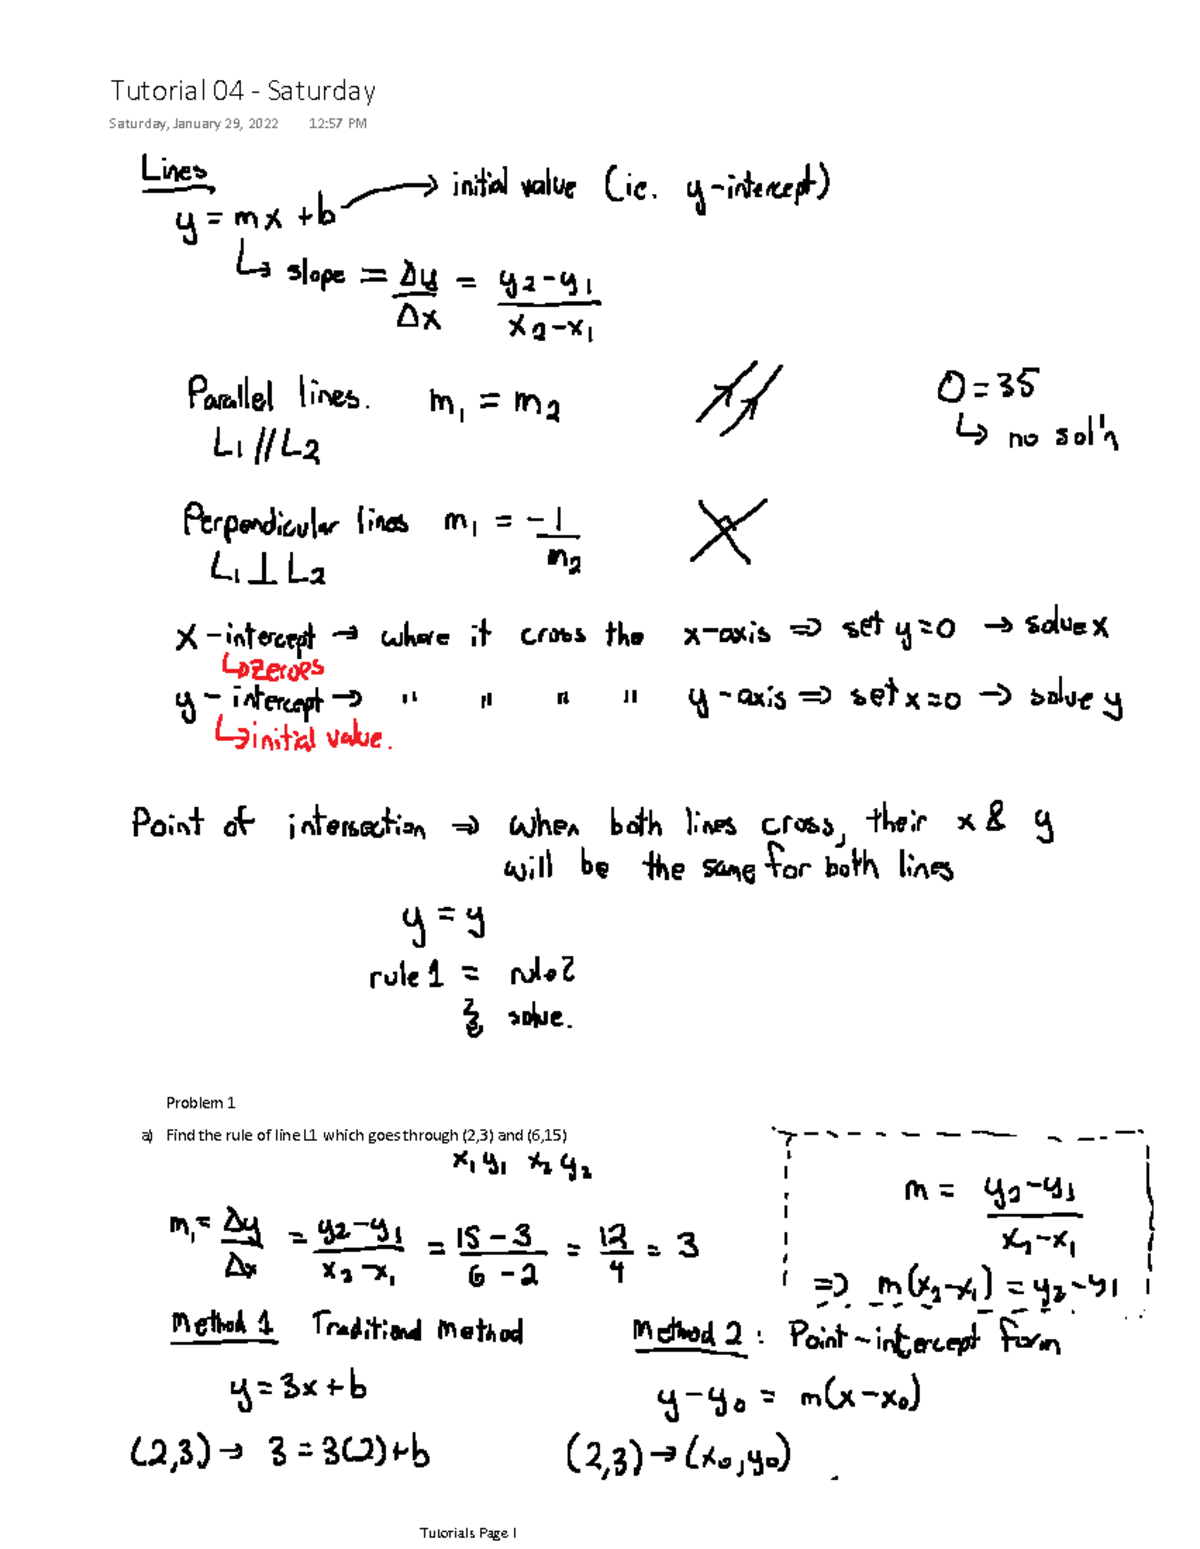 Tutorial 04 - Saturday
Saturday, January 29, 2022 12:57 PM
Lines
y = mx + b → initial value (ie. y-intercept)
↳ slope = Δy/Δx = (y2-y1)/(x2-x1)
Parallel lines. m1 = m2
L1 // L2
0 = 35
↳ no sol'n
Perpendicular lines m1 = -1/m2
L1 ⊥ L2
x-intercept → where it cross the x-axis ⇒ set y=0 → solve x
↳ zeroes
y-intercept → " " " " y-axis ⇒ set x=0 → solve y
↳ initial value.
Point of intersection ⇒ when both lines cross, their x & y
will be the same for both lines
y = y
rule 1 = rule 2
& solve.
Problem 1
a) Find the rule of line L1 which goes through (2,3) and (6,15)
x1 y1 x2 y2
m1 = Δy/Δx = (y2-y1)/(x2-x1) = (15-3)/(6-2) = 12/4 = 3
m = (y2-y1)/(x2-x1)
⇒ m(x2-x1) = y2-y1
Method 1 Traditional Method
y = 3x + b
(2,3) → 3 = 3(2)+b
Method 2 : Point-intercept form
y-y0 = m(x-x0)
(2,3) → (x0,y0)
Tutorials Page 1